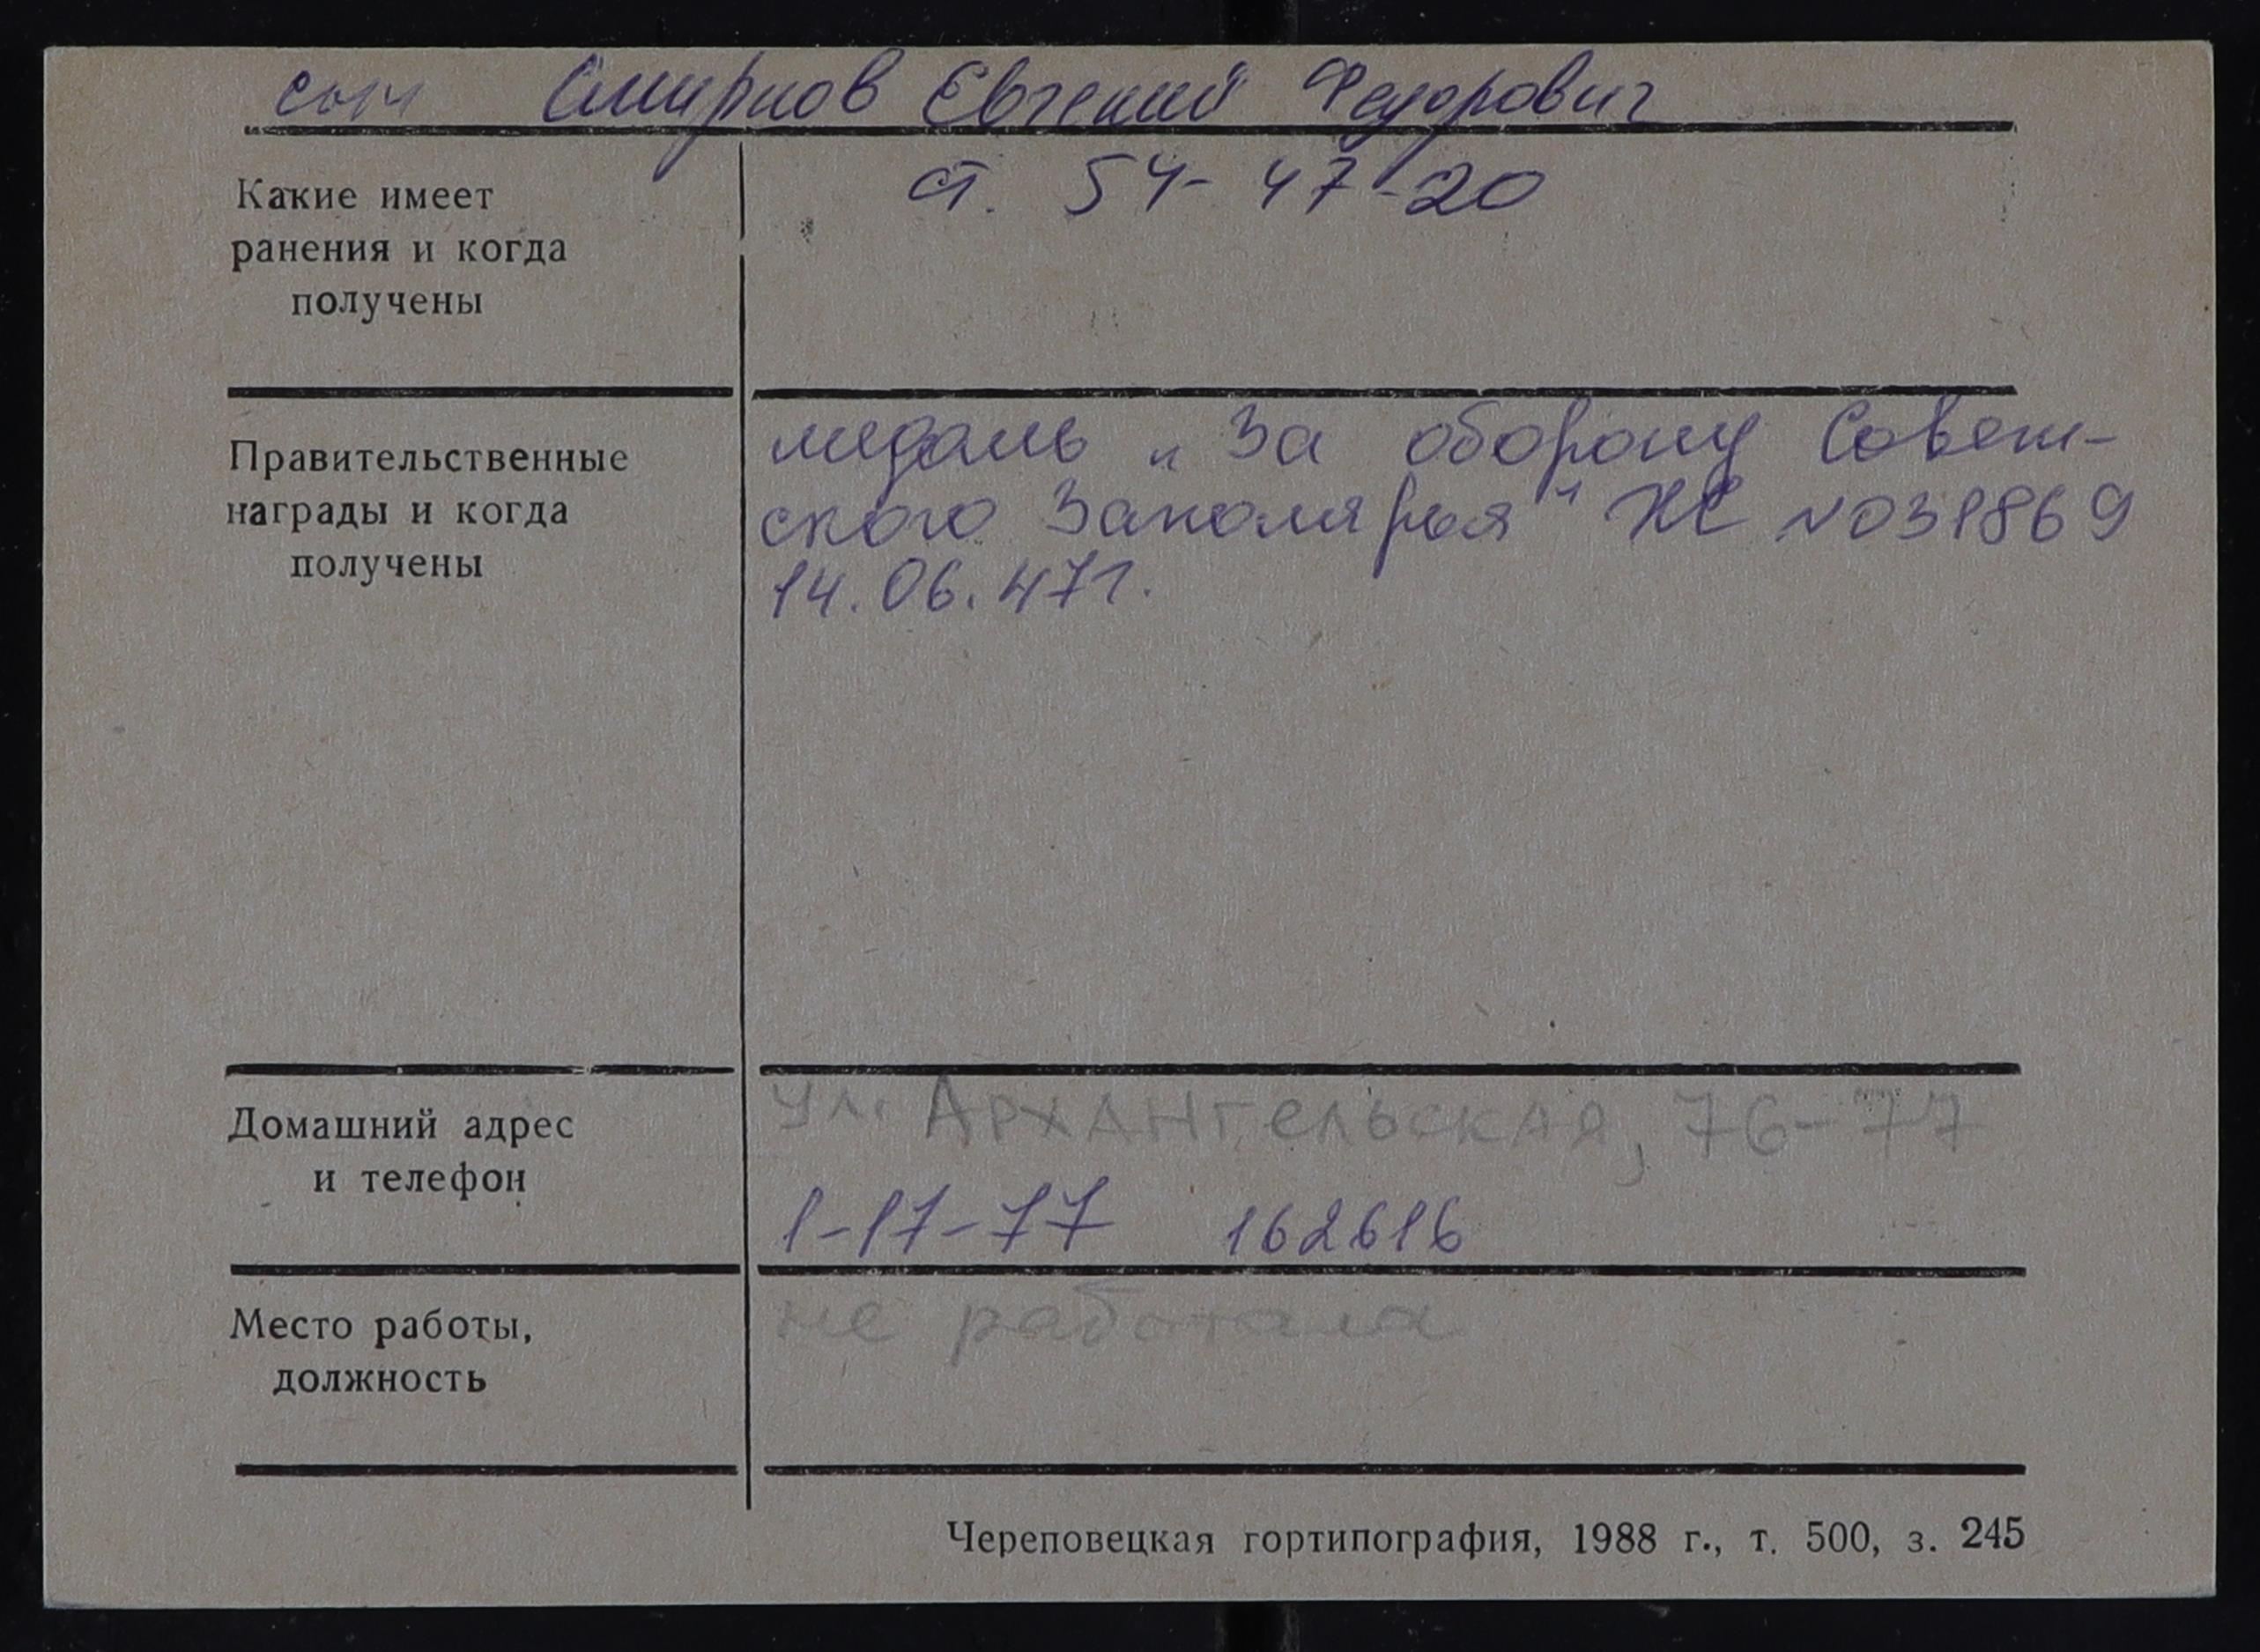 сын Смирнов Евгений Федорович
Какие имеет
ранения и когда
получены
ст. 54-47-20
Правительственные
награды и когда
получены
медаль „За оборону Совет-
ского Заполярья" ЖС N031869
14.06.47г.
Домашний адрес
и телефон
ул. Архангельская, 76-77
1-17-77 162616
Место работы,
должность
не работала
Череповецкая гортипография, 1988 г., т. 500, з. 245